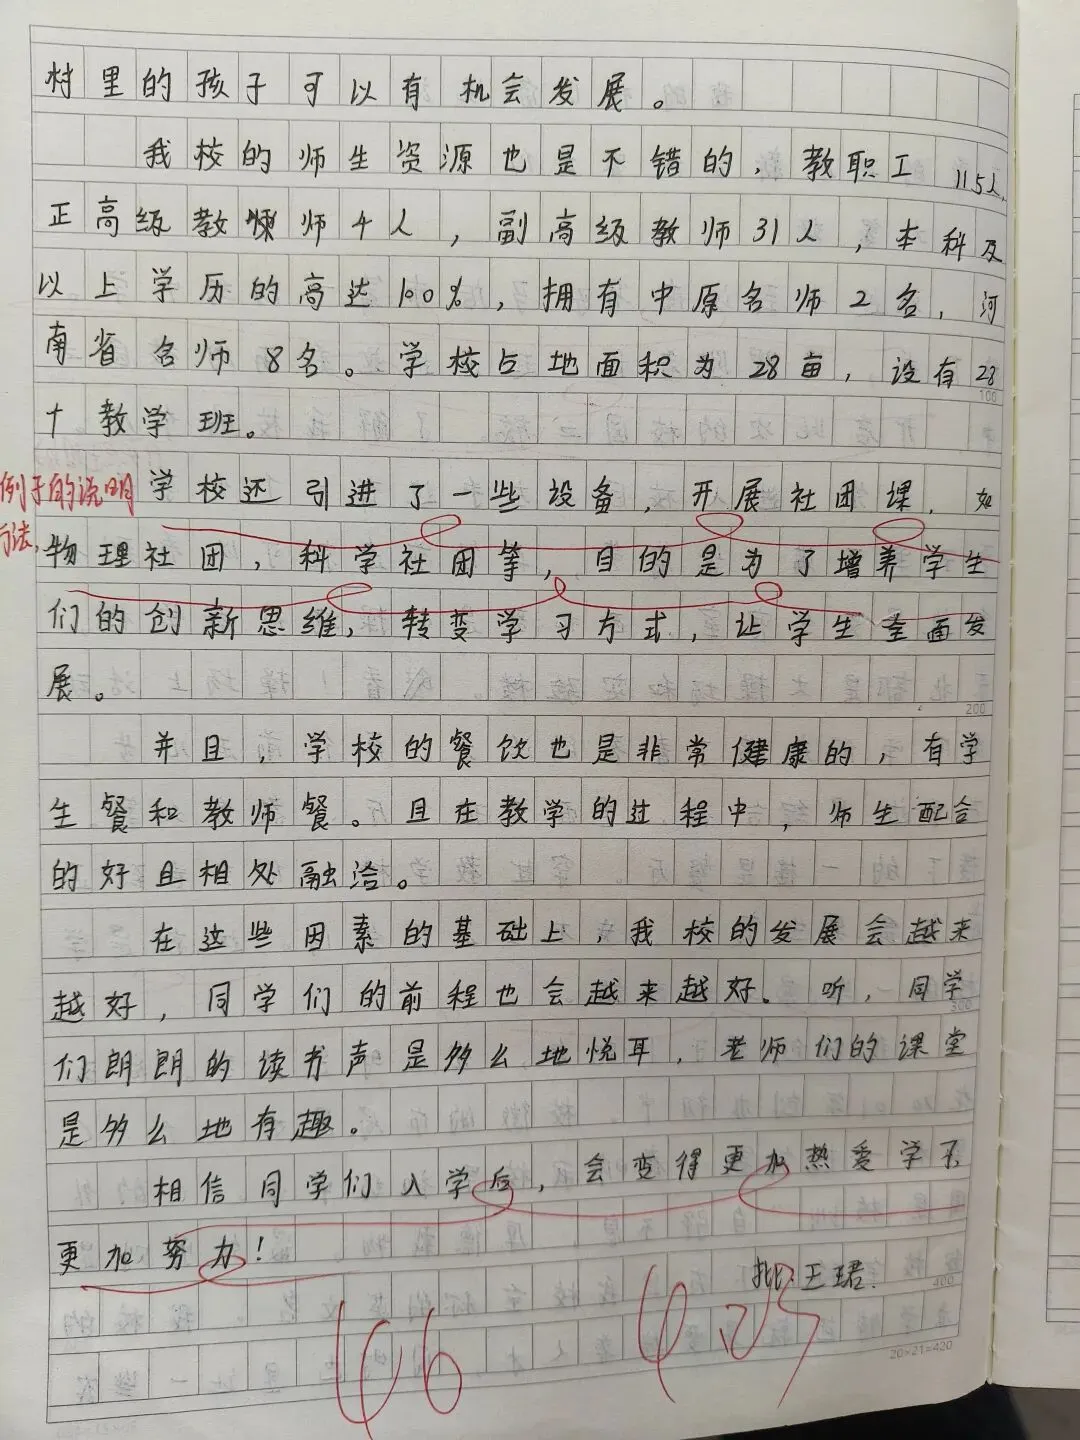 村里的孩子可以有机会发展。
我校的师生资源也是不错的，教职工115人，
正高级教师4人，副高级教师31人，本科及
以上学历的高达100%，拥有中原名师2名，河
南省名师8名。学校占地面积为28亩，设有28
个教学班。
例子的说明
方法，
学校还引进了一些设备，开展社团课，如
物理社团，科学社团等，目的是为了增养学生
们的创新思维，转变学习方式，让学生全面发
展。
并且，学校的餐饮也是非常健康的，有学
生餐和教师餐。且在教学的过程中，师生配合
的好且相处融洽。
在这些因素的基础上，我校的发展会越来
越好，同学们的前程也会越来越好。听，同学
们朗朗的读书声是多么地悦耳，老师们的课堂
是多么地有趣。
相信同学们入学后，会变得更加热爱学习，
更加努力！
批：王珺.
46
9.25
100
200
300
400
20×21=420